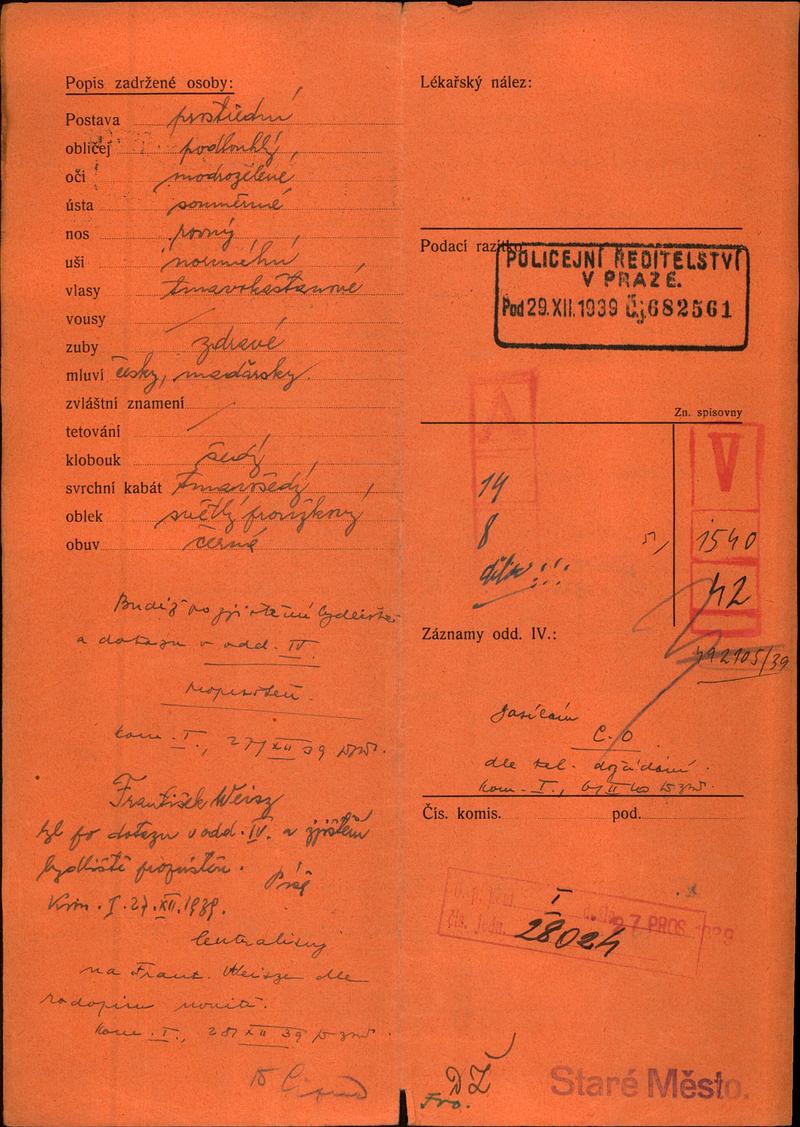 Popis zadržené osoby:
Postava prostřední
obličej podlouhlý
oči modrozelené
ústa souměrné
nos rovný
uši normální
vlasy tmavokaštanové
vousy /
zuby zdravé
mluví česky, maďarsky.
zvláštní znamení /
tetování
klobouk šedý
svrchní kabát tmavošedý
oblek světlý proužkový
obuv černé
Budiž po zjištění bydliště
a dotazu v odd. IV.
propuštěn.
kom. I., 27/XII 39
František Weisz
byl po dotazu v odd. IV. a zjištění
bydliště propuštěn.
Kom. I. 27.XII.1939.
na Frant. Weisze dle
kom. I., 28/XII 39
Lékařský nález:
Podací razítko:
POLICEJNÍ ŘEDITELSTVÍ
V PRAZE.
Pod 29.XII.1939 Č.j. 682561
Zn. spisovny
A
V
14
8
1540
42
Záznamy odd. IV.:
2105/39
C.O
dle tel. dožádání.
kom. I.,
Čís. komis. pod.
I
čís. jedn. 28024
27 PROS. 1939
DŽ
Fro.
Staré Město.